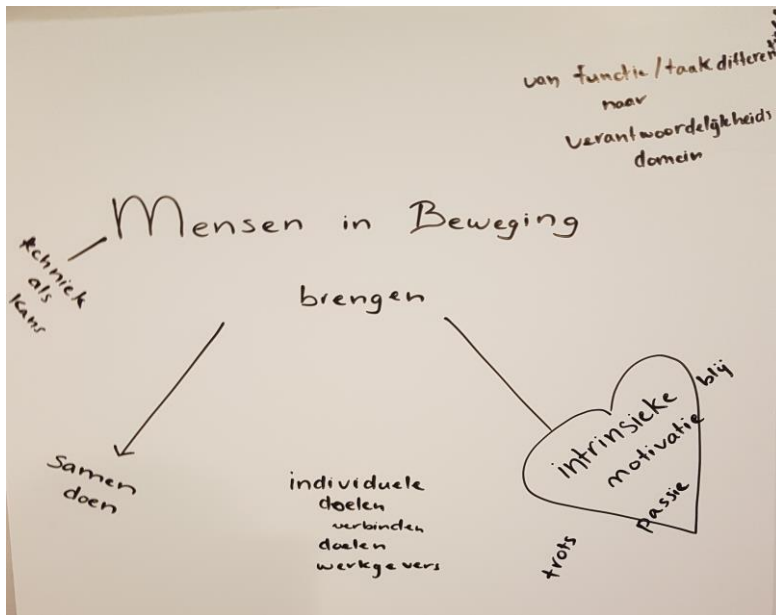 van functie/taakdifferen
naar
verantwoordelijkheids
domein
Mensen in Beweging
brengen
techniek
als
kans
samen
doen
individuele
doelen
verbinden
doelen
werkgevers
intrinsieke
motivatie
blij
passie
trots